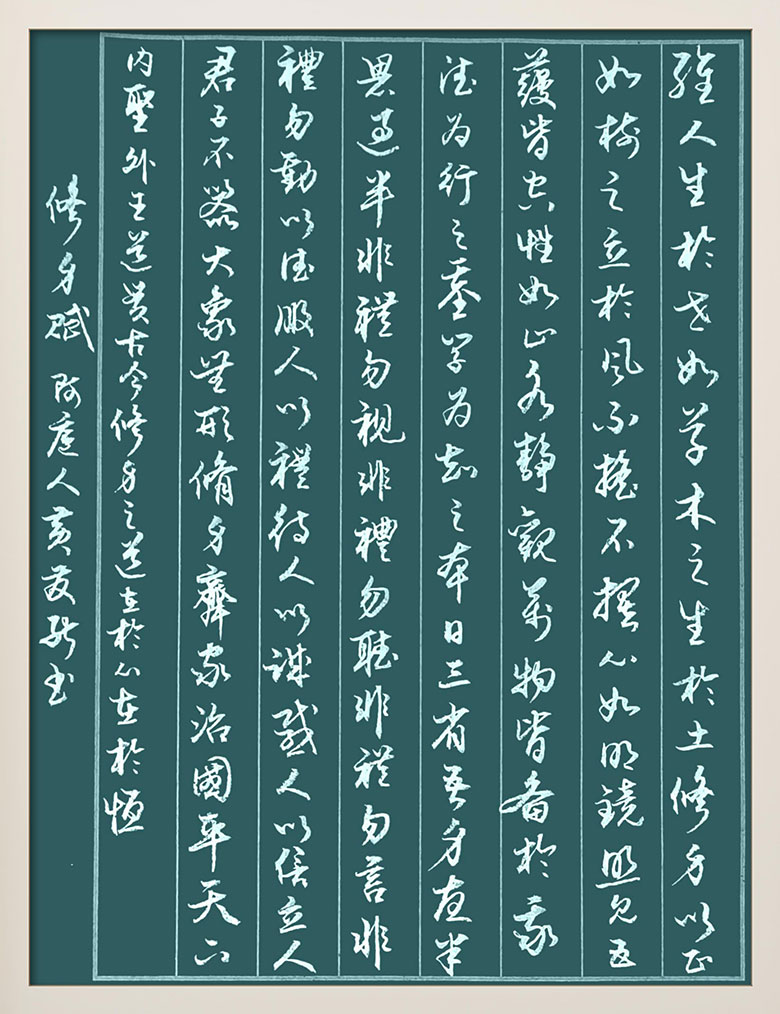 人生於世如草木之生於土修身以正
如樹之立於風不搖不擢心如明鏡照見五
蘊皆空性如止水靜觀萬物皆備於我
德為行之基學為知之本日三省吾身夜半
思過半非禮勿視非禮勿聽非禮勿言非
禮勿動以德服人以禮待人以誠感人以信立人
君子不器大象無形脩身齊家治國平天下
內聖外王道貫古今修身之道在於心在於恆
修身賦 人黃 書